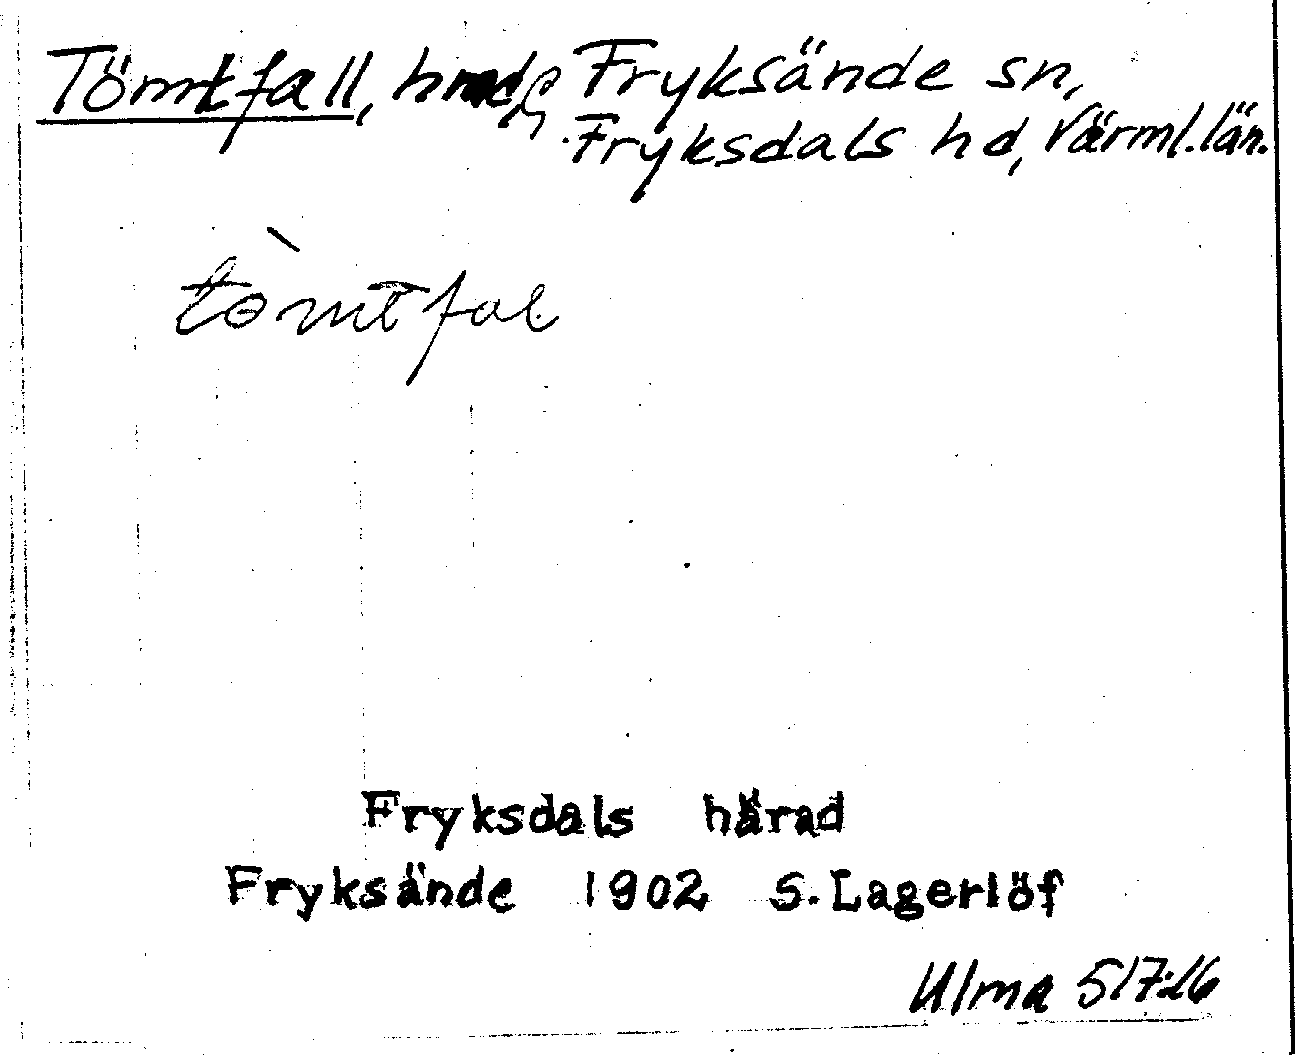 Tömtfall, hmd Fryksände sn,
Fryksdals hd, Värml. län.
tòmtfal
Fryksdals härad
Fryksände 1902 S. Lagerlöf
Ulma 517:26